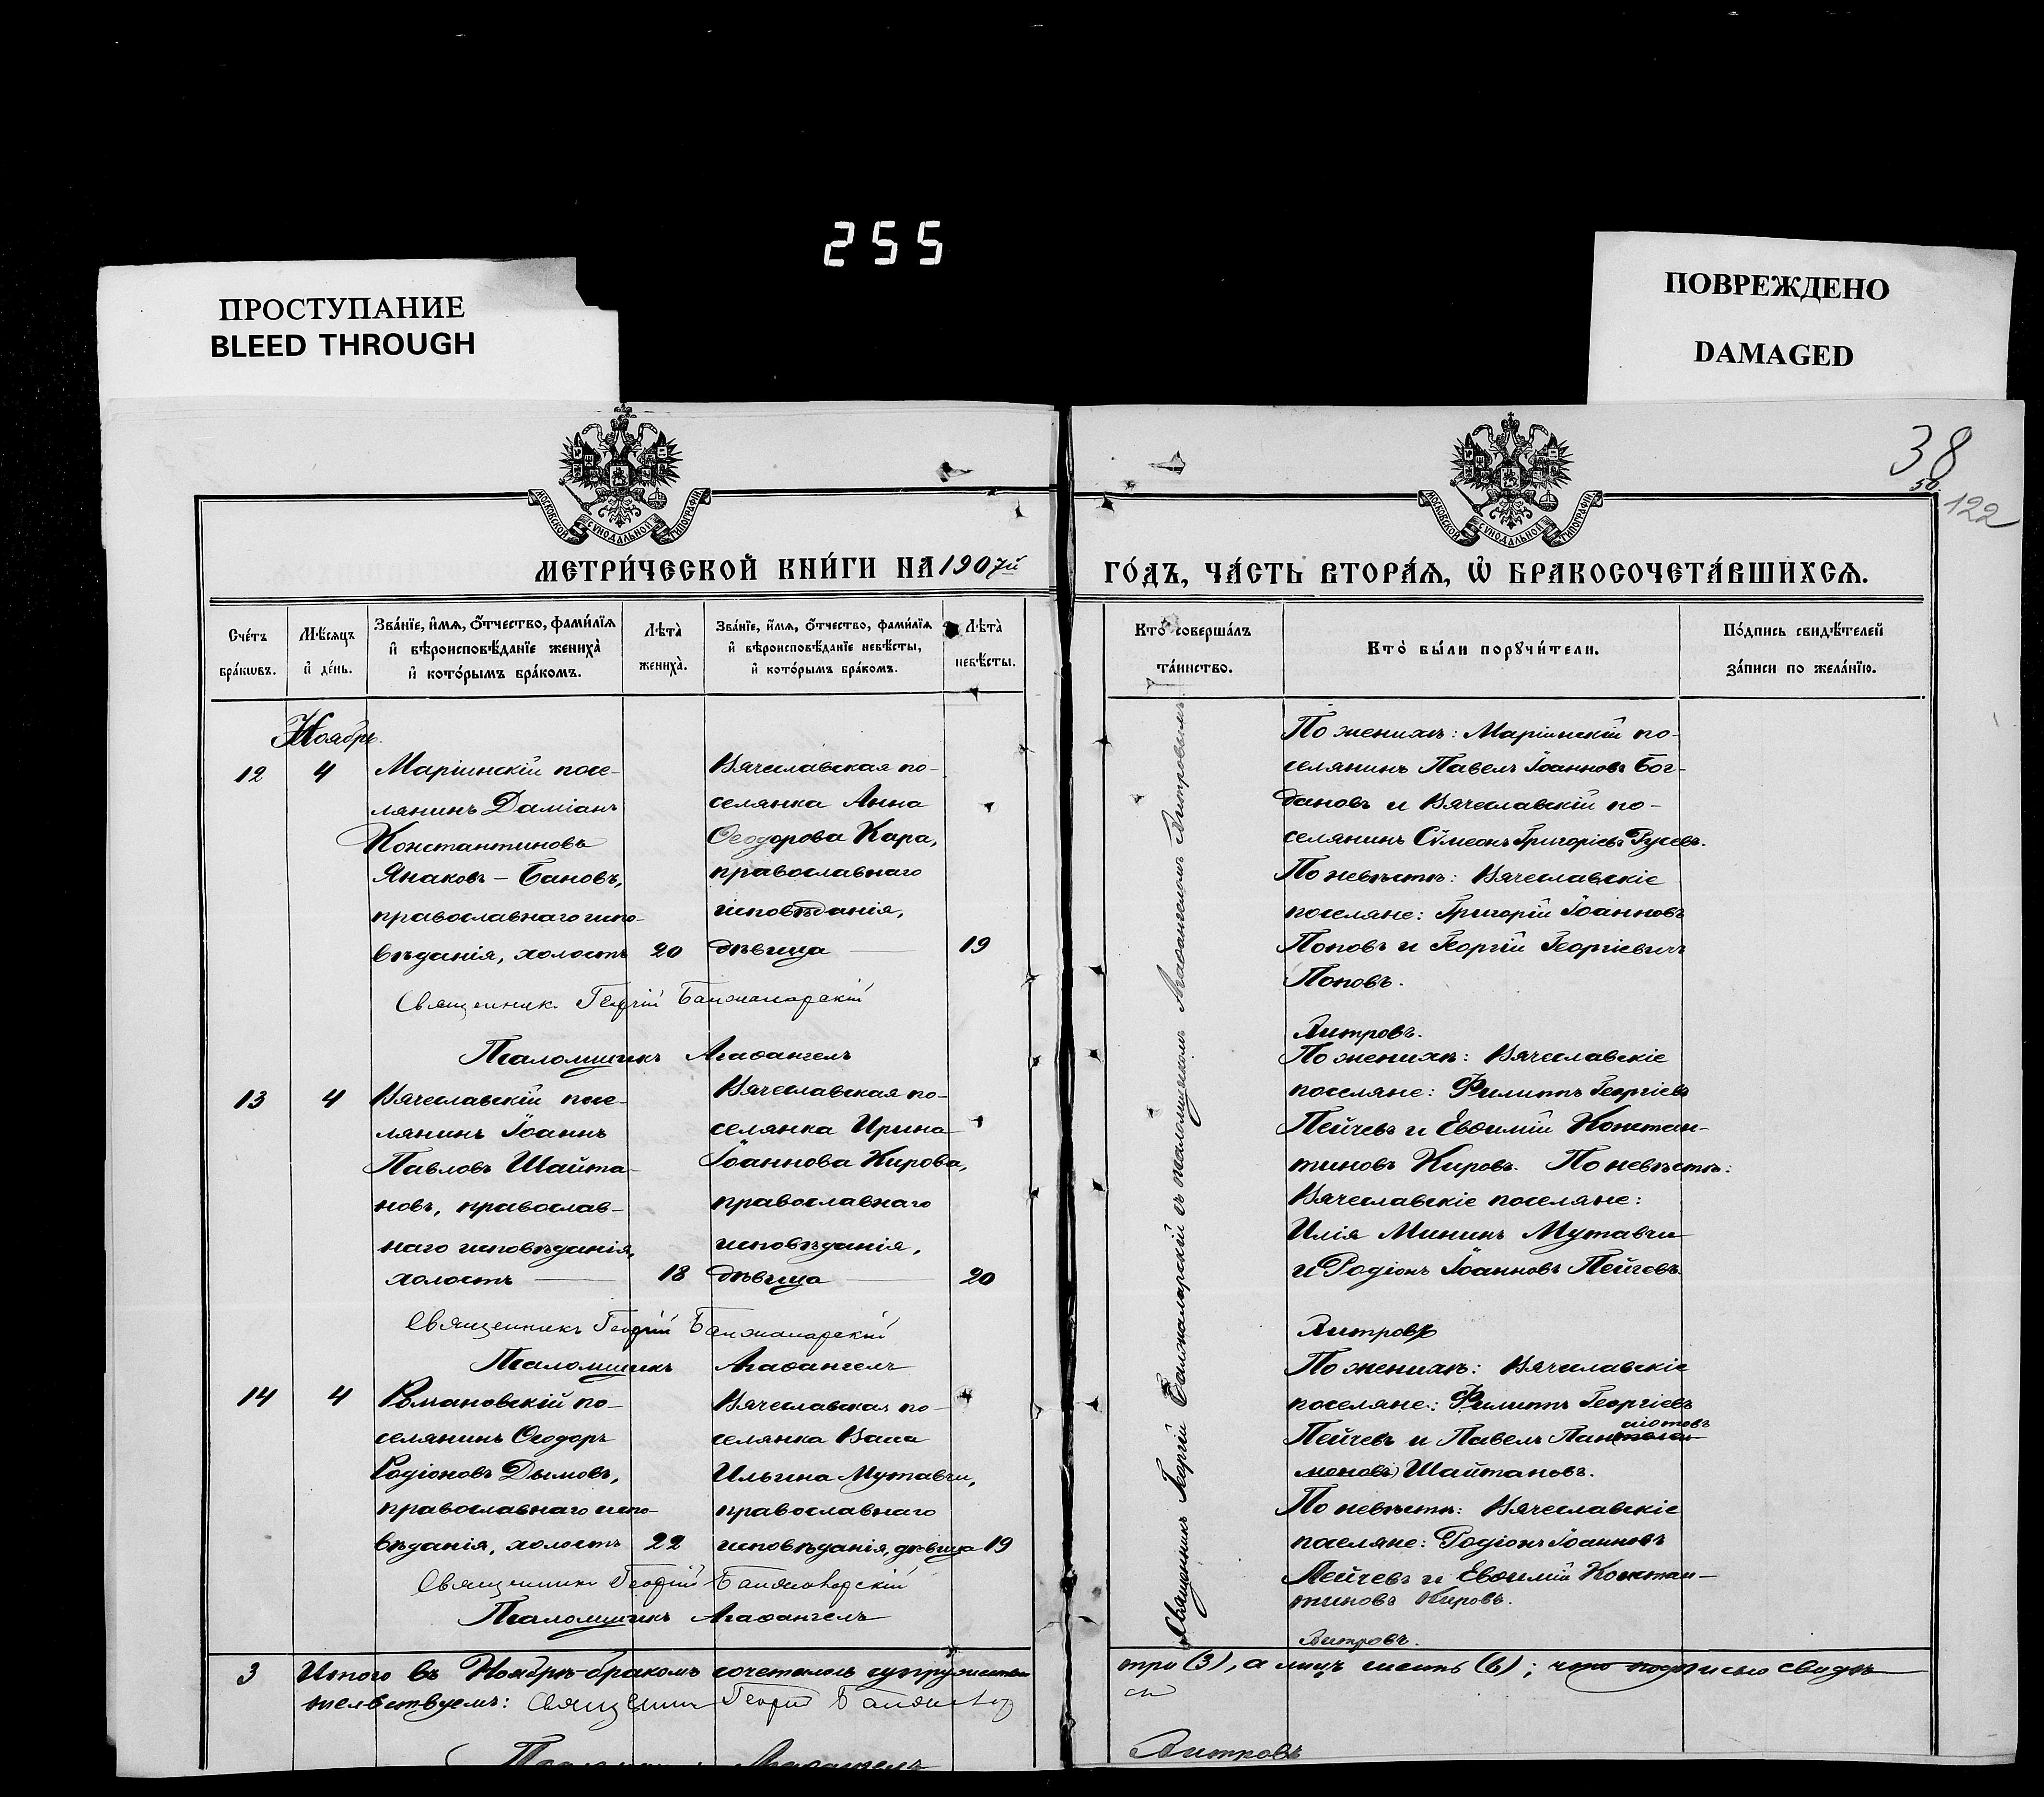 255
ПРОСТУПАНИЕ
BLEED THROUGH
ПОВРЕЖДЕНО
DAMAGED
38
50
122
МОСКОВСКОЙ СУНОДАЛЬНОЙ ТИПОГРАФІИ
МОСКОВСКОЙ СУНОДАЛЬНОЙ ТИПОГРАФІИ
МЕТРИ́ЧЕСКОЙ КНИ́ГИ НА 1907й
ГО́ДЪ, ЧА́СТЬ ВТОРА́Ѧ, Ѡ БРАКОСОЧЕТА́ВШИХСѦ.
Сче́тъ
бра́кѡвъ.
Мѣ́сѧцъ
и де́нь.
Зва́нїе, и́мѧ, о́тчество, фами́лїѧ
и вѣроисповѣ́данїе жениха̀
и кото́рымъ бра́комъ.
Лѣта̀
жениха̀.
Зва́нїе, и́мѧ, о́тчество, фами́лїѧ
и вѣроисповѣ́данїе невѣ́сты,
и кото́рымъ бра́комъ.
Лѣта̀
невѣ́сты.
Кто̀ соверша́лъ
та́инство.
Кто̀ бы́ли порꙋчи́тели.
По́дпись свидѣ́телей
за́писи по жела́нїю.
Ноябрь.
12
4
Маріинскій посе-
лянинъ Даміанъ
Константиновъ
Янаковъ – Бановъ,
православнаго испо-
вѣданія, холостъ
20
Вячеславская по-
селянка Анна
Ѳеодорова Кара,
православнаго
исповѣданія,
дѣвица
19
По женихѣ: Маріинскій по-
селянинъ Павелъ Іоанновъ Бог-
дановъ и Вячеславскій по-
селянинъ Сѵмеонъ Григоріевъ Русевъ.
По невѣстѣ: Вячеславскіе
поселяне: Григорій Іоанновъ
Поповъ и Георгій Георгіевичъ
Поповъ.
Священникъ Георгій
Псаломщикъ Агаѳангелъ
Витровъ.
13
4
Вячеславскій посе-
лянинъ Іоаннъ
Павловъ Шайта-
новъ, православ-
наго исповѣданія,
холостъ
18
Вячеславская по-
селянка Ирина
Іоаннова Кирова,
православнаго
исповѣданія,
дѣвица
20
По женихѣ: Вячеславскіе
поселяне: Филиппъ Георгіевъ
Пейчевъ и Евѳимій Констан-
тиновъ Кировъ. По невѣстѣ:
Вячеславскіе поселяне:
Илія Мининъ Мутавчи
и Родіонъ Іоанновъ Пейчевъ.
Священникъ Георгій
Псаломщикъ Агаѳангелъ
Витровъ
14
4
Романовскій по-
селянинъ Ѳеодоръ
Родіоновъ Дымовъ,
православнаго испо-
вѣданія, холостъ
22
Вячеславская по-
селянка Васса
Ильина Мутавчи,
православнаго
исповѣданія, дѣвица
19
По женихѣ: Вячеславскіе
поселяне: Филиппъ Георгіевъ
Пейчевъ и Павелъ
Шайтановъ.
По невѣстѣ: Вячеславскіе
поселяне: Родіонъ Іоанновъ
Пейчевъ и Евѳимій Констан-
тиновъ Кировъ.
Священникъ Георгій
Псаломщикъ Агаѳангелъ
Витровъ.
Священникъ Георгій съ псаломщикомъ Агаѳангеломъ Витровымъ
3
Итого въ Ноябрѣ бракомъ сочеталось супружествъ три (3), а лицъ шесть (6); что подписью свидѣ-
тельствуемъ: Священникъ Георгій
Псаломщикъ Агаѳангелъ